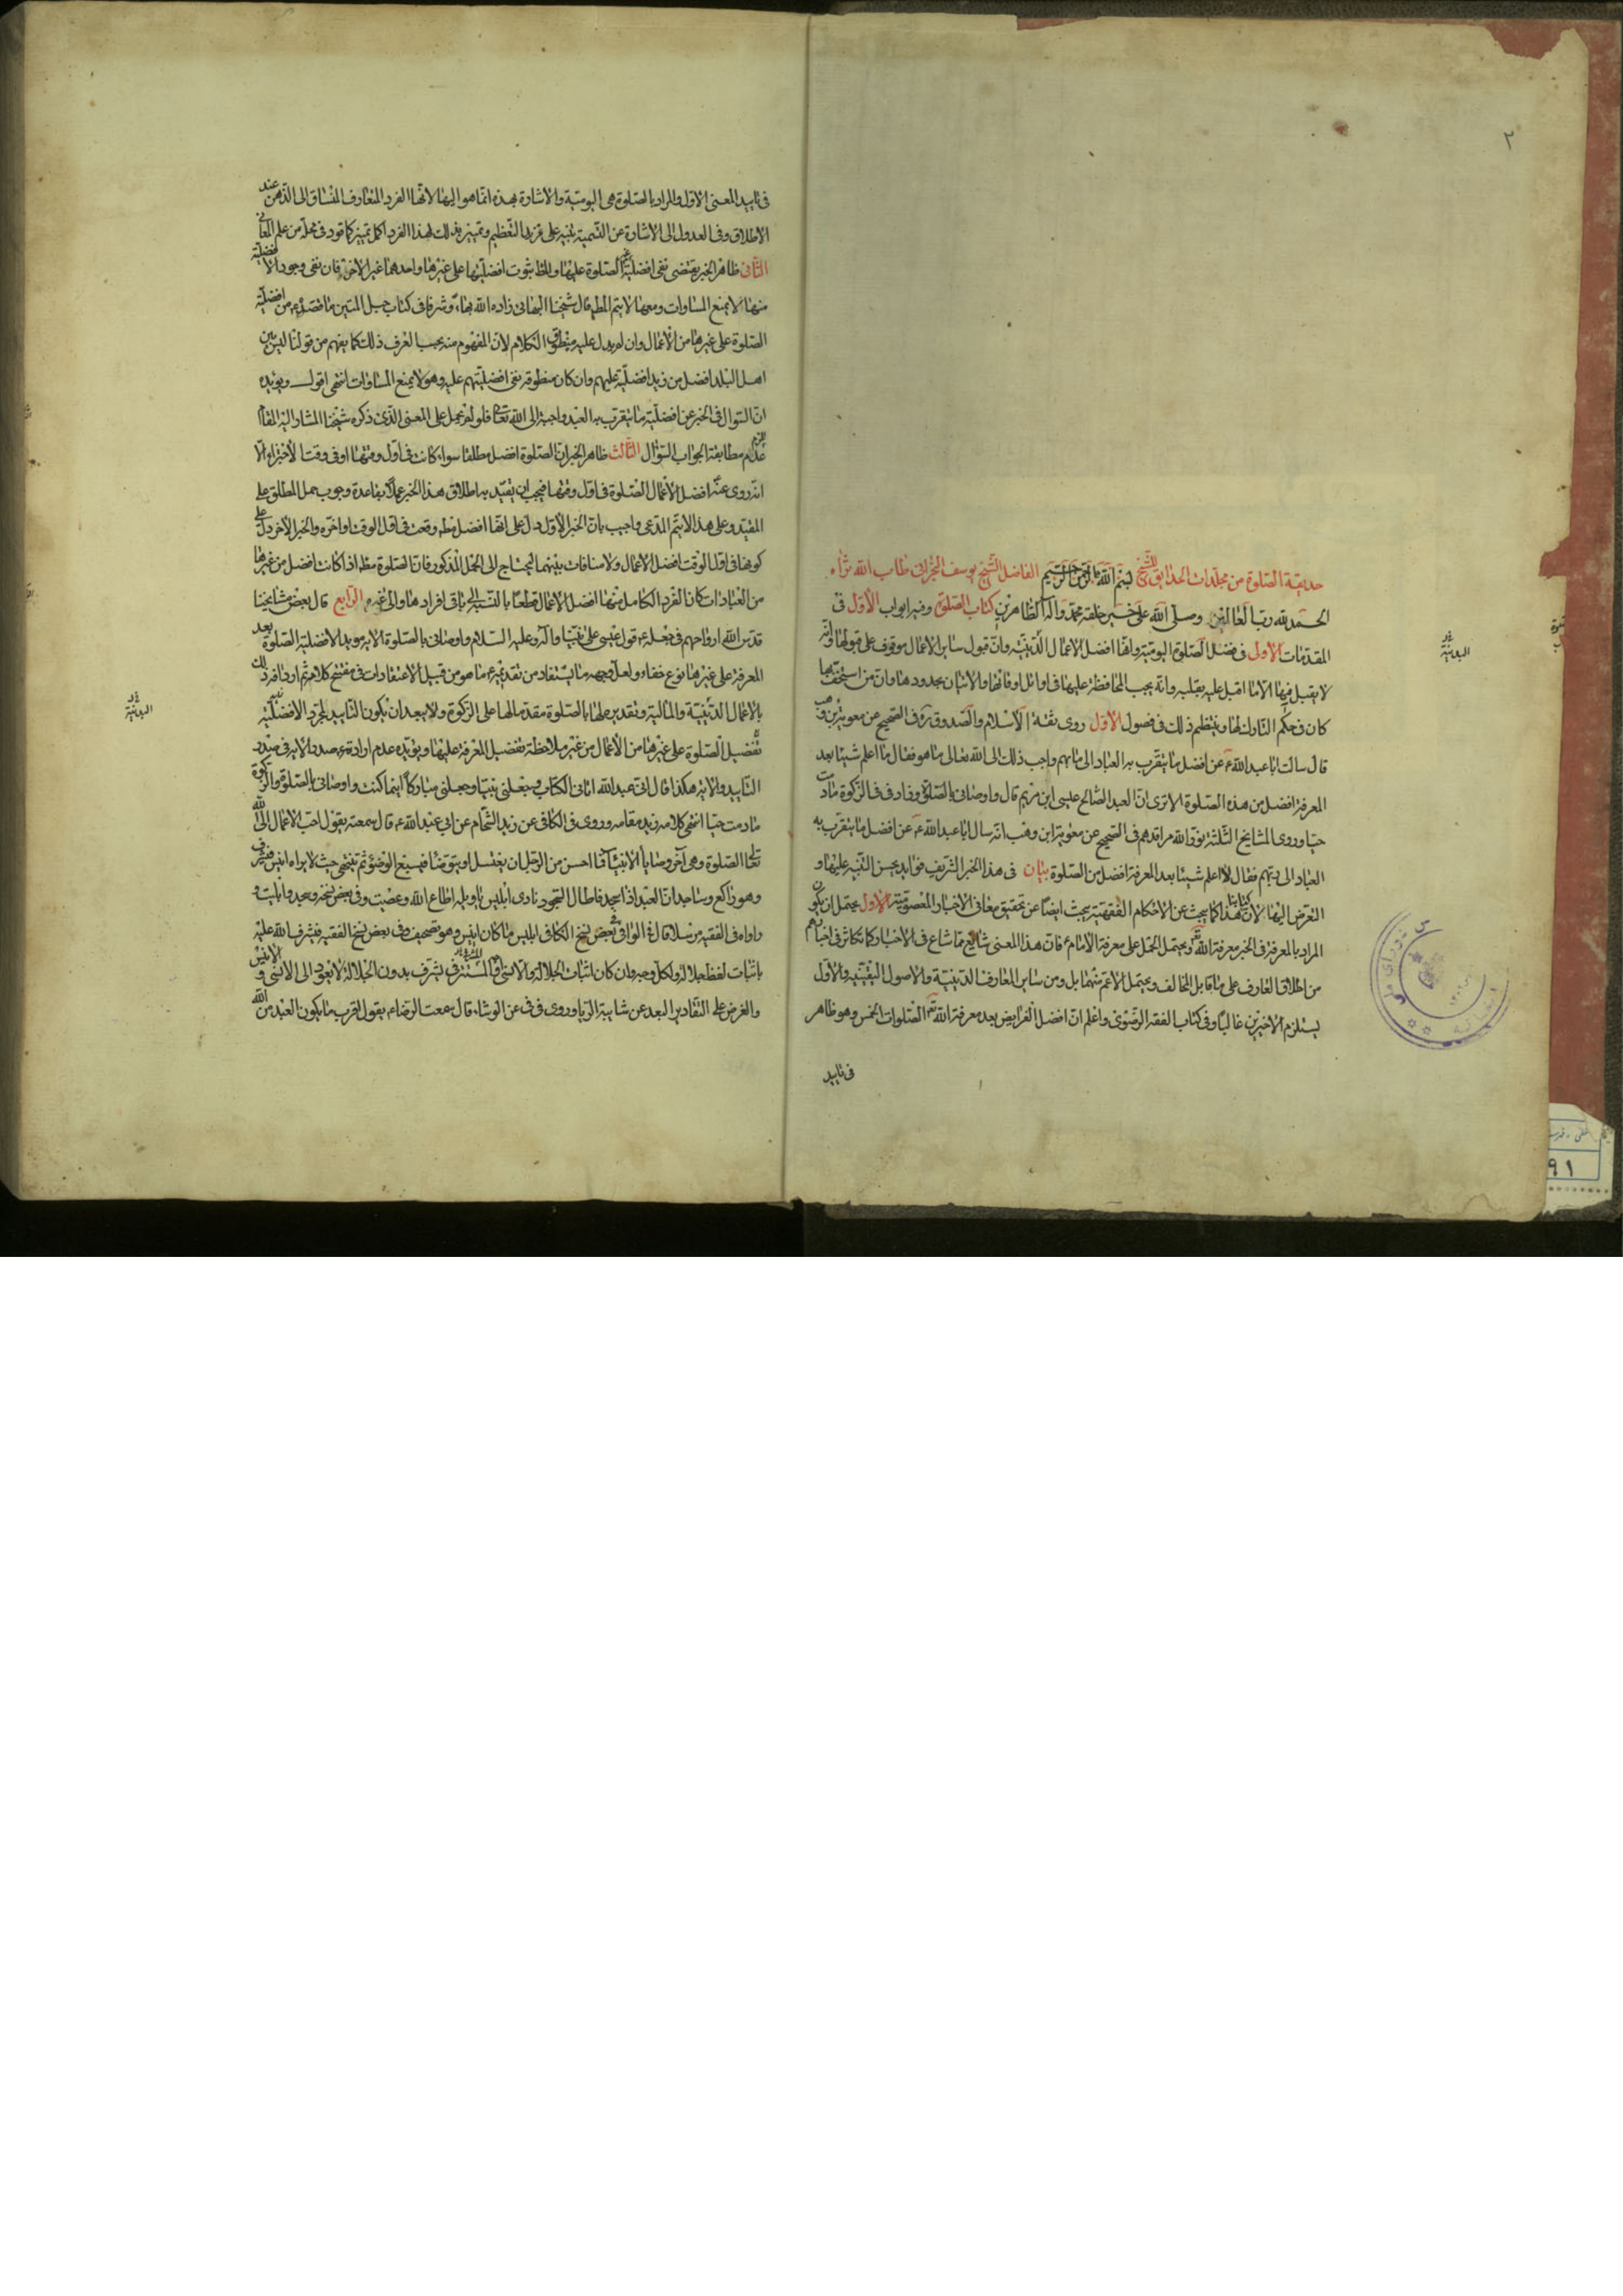 ٢
حديقة الصلوة من مجلدات الحدايق للشيخ بسم الله الرحمن الرحيم الفاضل الشيخ يوسف البحرانى طاب الله ثراه
الحمد لله رب العالمين وصلى الله على خير خلقه محمد وآله الطاهرين كتاب الصلوة وفيه ابواب الأول فى
المقدمات الأولى فى فضل الصلوة اليومية وانها افضل الاعمال الدينية وان قبول ساير الاعمال موقوف على قبولها وانه
لا يقبل منها الا ما اقبل عليه بقلبه وانه يجب المحافظة عليها فى اوائل اوقاتها والاتيان بحدودها وان من استخف بها
كان فى حكم التارك لها وينتظم ذلك فى فصول الأول روى ثقة الاسلام والصدوق ره فى الصحيح عن معوية بن وهب
قال سالت ابا عبد الله ع عن افضل ما يتقرب به العباد الى ربهم واحب ذلك الى الله تعالى ما هو فقال ما اعلم شيئا بعد
المعرفة افضل من هذه الصلوة الا ترى ان العبد الصالح عيسى ابن مريم قال واوصانى بالصلوة وزاد فى فى الزكوة ما دمت
حيا وروى المشايخ الثلثة نور الله مراقدهم فى الصحيح عن معوية ابن وهب انه سال ابا عبد الله ع عن افضل ما يتقرب به
العباد الى ربهم فقال لا اعلم شيئا بعد المعرفة افضل من الصلوة بيان فى هذا الخبر الشريف فوايد يحسن التنبيه عليها و
التعرض اليها لان كتابنا هذا كما يبحث عن الاحكام الفقهية يبحث ايضا عن تحقيق معانى الاخبار المعصومية الأول يحتمل ان يكون
المراد بالمعرفة فى الخبر معرفة الله تعالى ويحتمل الحمل على معرفة الامام ع فان هذا المعنى شايع مما شاع فى الاخبار كما تكاثر فى اخبارهم
من اطلاق العارف على ما قابل المخالف ويحتمل الاعم منهما بل ومن ساير المعارف الدينية والاصول اليقينية والأول
يستلزم الاخيرين غالبا وفى كتاب الفقه الرضوى واعلم ان افضل الفرايض بعد معرفة الله تعالى الصلوات الخمس وهو ظاهر
فى تاييد
فى تاييد المعنى الاول والمراد بالصلوة هى اليومية والاشارة بهذه انما هو اليها لانها الفرد المتعارف المنساق الى الذهن عند
الاطلاق وفى العدول الى الاشارة عن التسمية تنبيه على مزيد التعظيم وتمييز بذلك لهذا الفرد اكمل تمييز كما قرر فى محله من علم المعانى
الثانى ظاهر الخبر يقتضى نفى افضلية غير الصلوة عليها والمط ثبوت افضليتها على غيرها واحدهما غير الاخر فان نفى وجود افضلية
منها لا يمنع المساوات ومعها لا يتم المط قال شيخنا البهائى زاده الله بهاء وشرفا فى كتاب حبل المتين ما قصده ع من افضلية
الصلوة على غيرها من الأعمال وان لم يدل عليه منطوق الكلام لان المفهوم منه بحسب العرف ذلك كما يفهم من قولنا ليس بين
اهل البلد افضل من زيد افضليته عليهم وان كان منطوقه نفى افضليتهم عليه وهو لا يمنع المساوات انتهى اقول ويؤيده
ان السوال فى الخبر عن افضلية ما يتقرب به العبد واحبه الى الله تعالى فلو لم يحمل على المعنى الذى ذكره شيخنا المشار اليه
لزم عدم مطابقة الجواب السؤال الثالث ظاهر الخبر ان الصلوة افضل مطلقا سواء كانت فى اول وقتها او فى وقت الأخير الا
انه روى عنه افضل الأعمال الصلوة فى اول وقتها فيجب ان يقيد به اطلاق هذا الخبر عملا بقاعدة وجوب حمل المطلق على
المقيد وعلى هذا لا يتم المدعى واجيب بان الخبر الأول دل على انها افضل مط وقعت فى اول الوقت او آخره والخبر الأخر دل على
كونها فى اول الوقت افضل الاعمال ولا منافات بينهما ليحتاج الى الحمل المذكور فان الصلوة مط اذا كانت افضل من غيرها
من العبادات كان الفرد الكامل منها افضل الاعمال قطعا بالنسبة الى باقى افرادها والى غيره الرابع قال بعض مشايخنا
قدس الله ارواحهم فى جعله ع قول عيسى على نبينا وآله وعليه السلام واوصانى بالصلوة الاية مويدا لافضلية الصلوة بعد
المعرفة على غيرها نوع خفاء ولعل وجهه ما يستفاد من تقديمه ع ما هو من قبيل الاعتقادات فى مفتتح كلامه ثم اردافه ذلك
بالاعمال البدنية والمالية وتقديمه لها بالصلوة مقدما لها على الزكوة ولا يبعد ان يكون التاييد لمجرد الافضلية
تفضيل الصلوة على غيرها من الأعمال من غير ملاحظة تفضيل المعرفة عليها ويؤيده عدم ايراده ع صدر الاية فى صدر
التاييد والاية هكذا قال انى عبد الله اتانى الكتاب وجعلنى نبيا وجعلنى مباركا اينما كنت واوصانى بالصلوة والزكوة
ما دمت حيا انتهى كلامه زيد مقامه وروى فى الكافى عن زيد الشحام عن ابى عبد الله ع قال سمعته يقول احب الاعمال الى الله
تعالى الصلوة وهى آخر وصايا الانبياء فما احسن من الرجل ان يغتسل او يتوضأ فيسبغ الوضوء ثم يتنحى حيث لا يراه انيس فيشرف عليه
وهو راكع وساجد ان العبد اذا سجد فاطال السجود نادى ابليس يا ويله اطاع الله وعصيت وفى بعض نسخه وسجد وابيت و
رواه فى الفقيه مرسلا قال فى الوافى فى بعض نسخ الكافى ابليس مكان انيس وهو تصحيف وفى بعض نسخ الفقيه فيشرف الله عليه
باثبات لفظ الجلالة ولكل وجه وان كان اثبات الجلالة والانسى
والغرض على التقادير البعد عن شايبة الريا وروى فى فى عن الوشاء قال سمعت الرضا ع يقول اقرب ما يكون العبد من الله
البدنية
البدنية
٩١